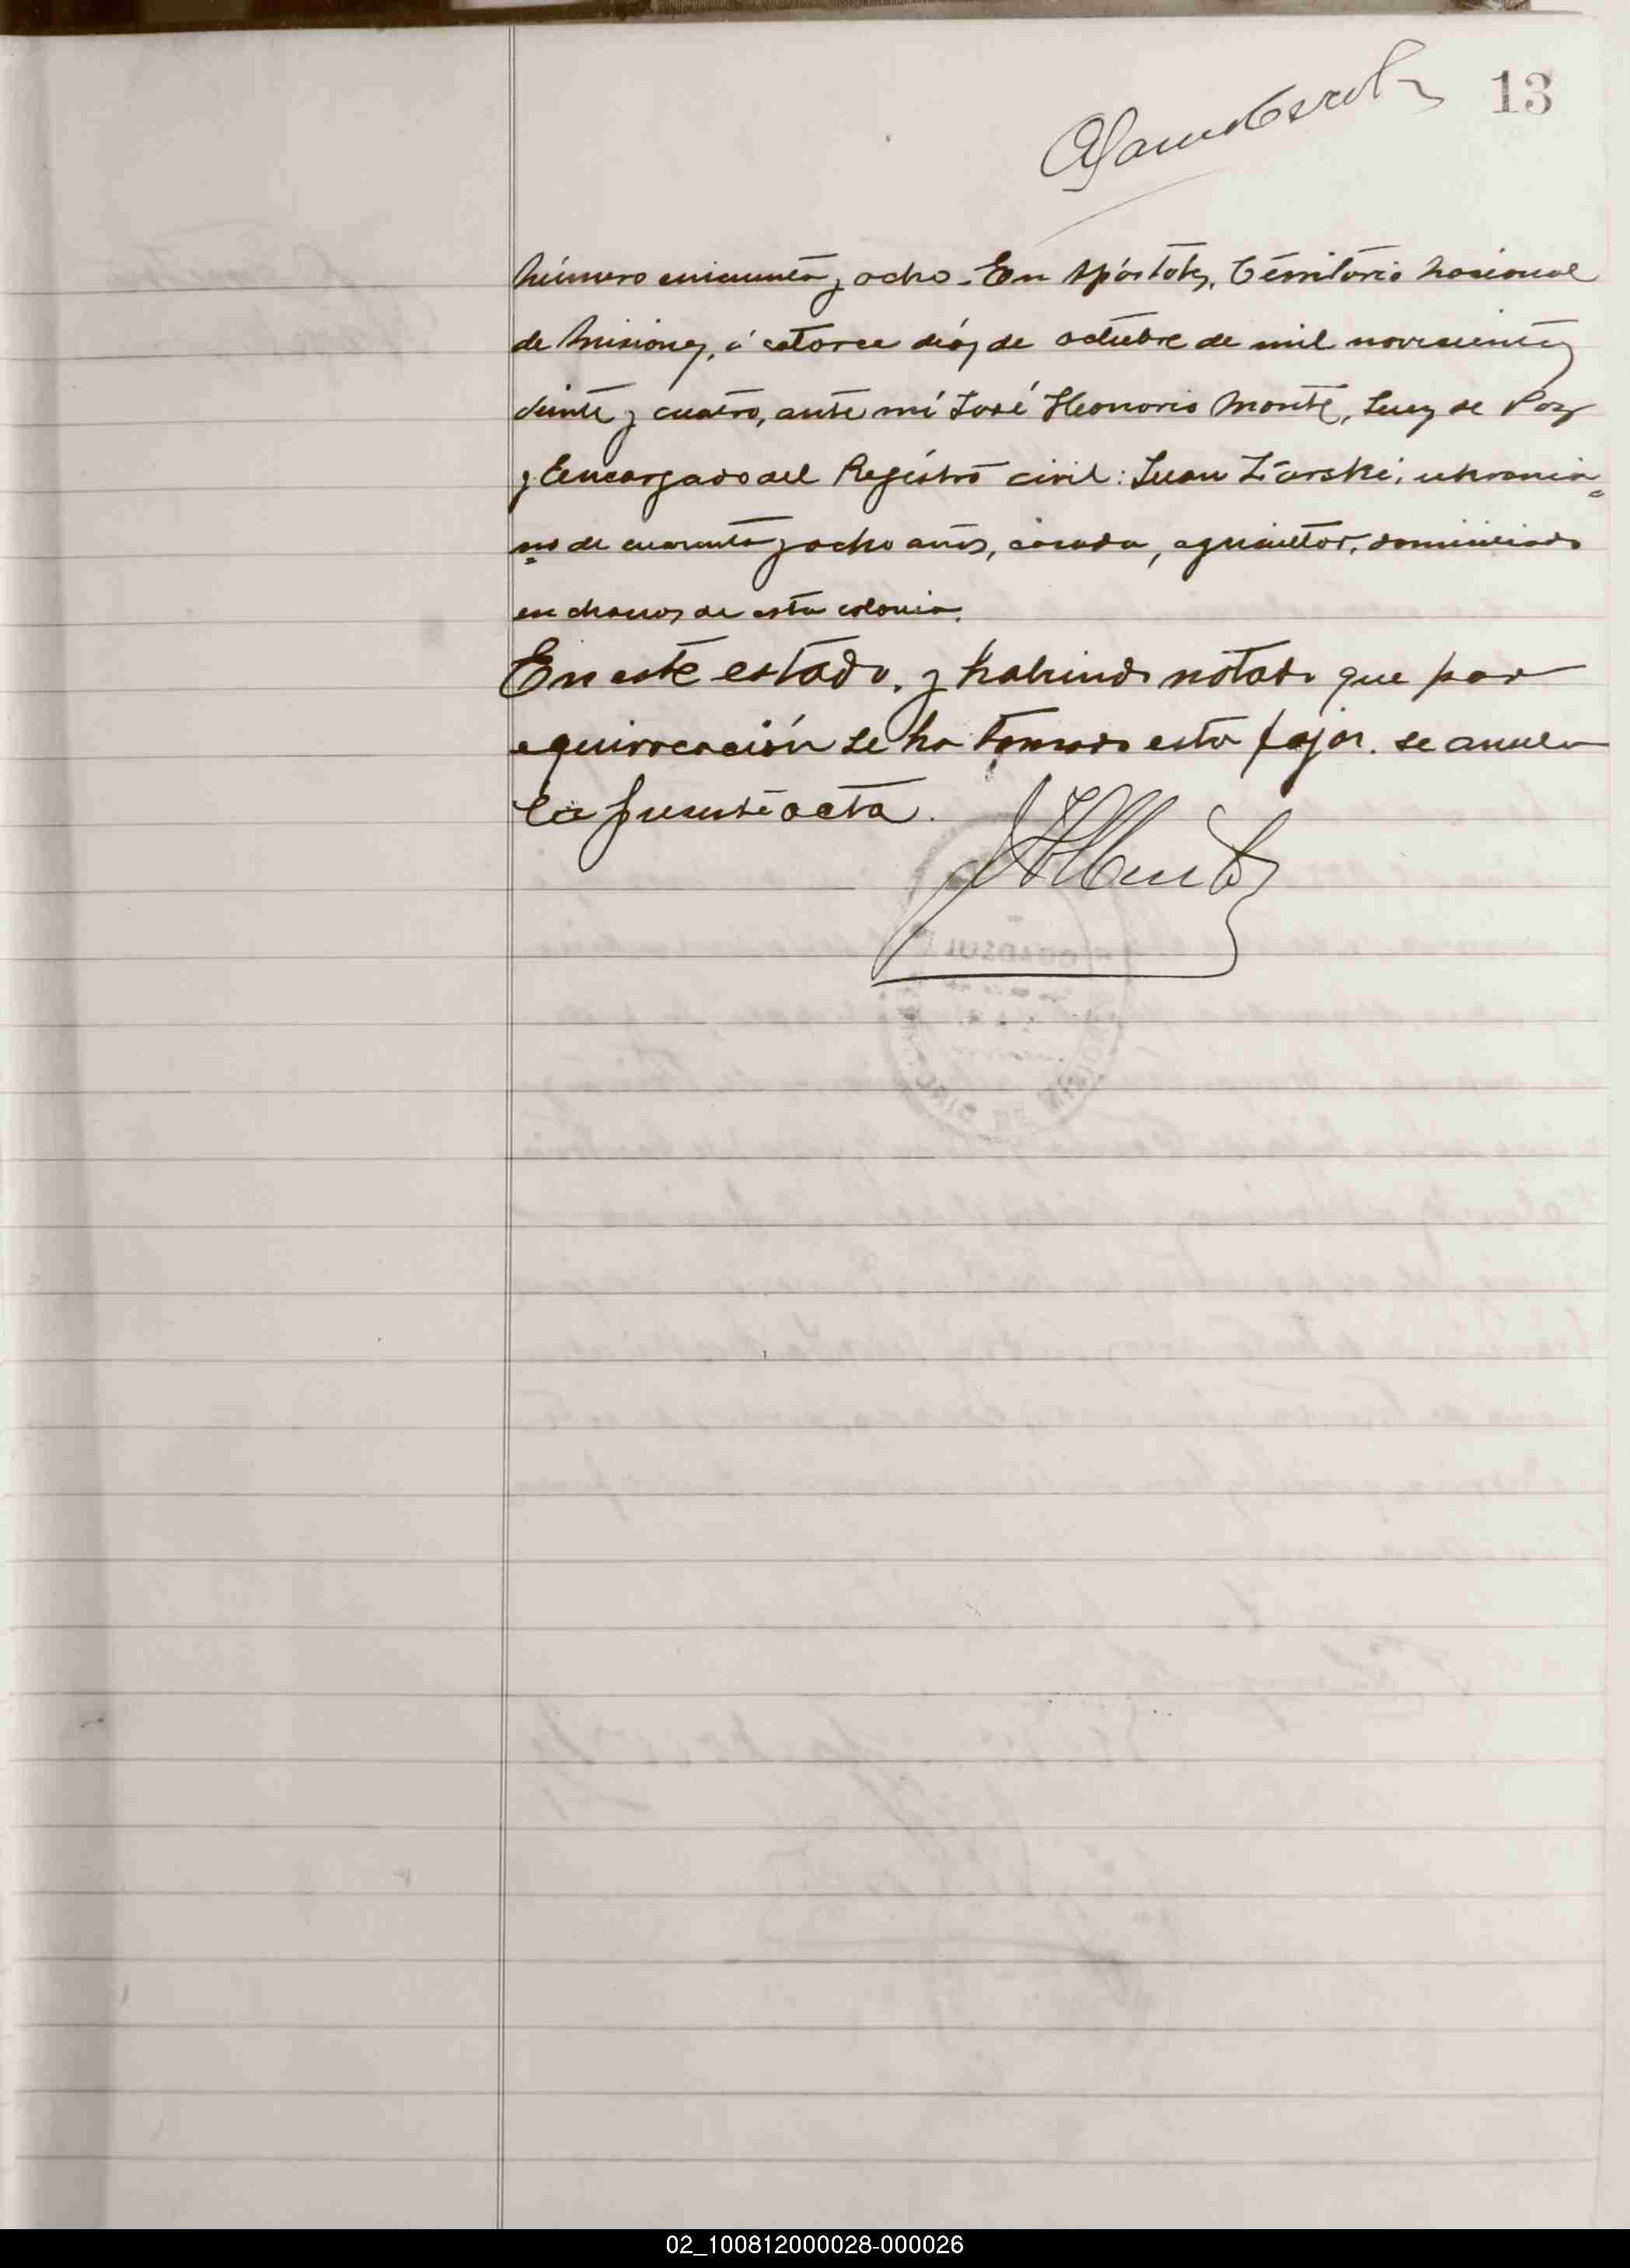 13
Número cincuenta y ocho.- En Apóstoles, Territorio Nacional
de Misiones, á catorce dias de octubre de mil novecientos
veinte y cuatro, ante mí José Honorio Monte, Juez de Paz
y Encargado del Registro civil: Juan Zarski, ukrania=
=no de cuarenta y ocho años, casado, agricultor, domiciliado
en chacras de esta colonia.
En este estado, y habiendo notado que por
equivocación se ha tomado esta foja. se anula
la presente acta.
02_100812000028-000026